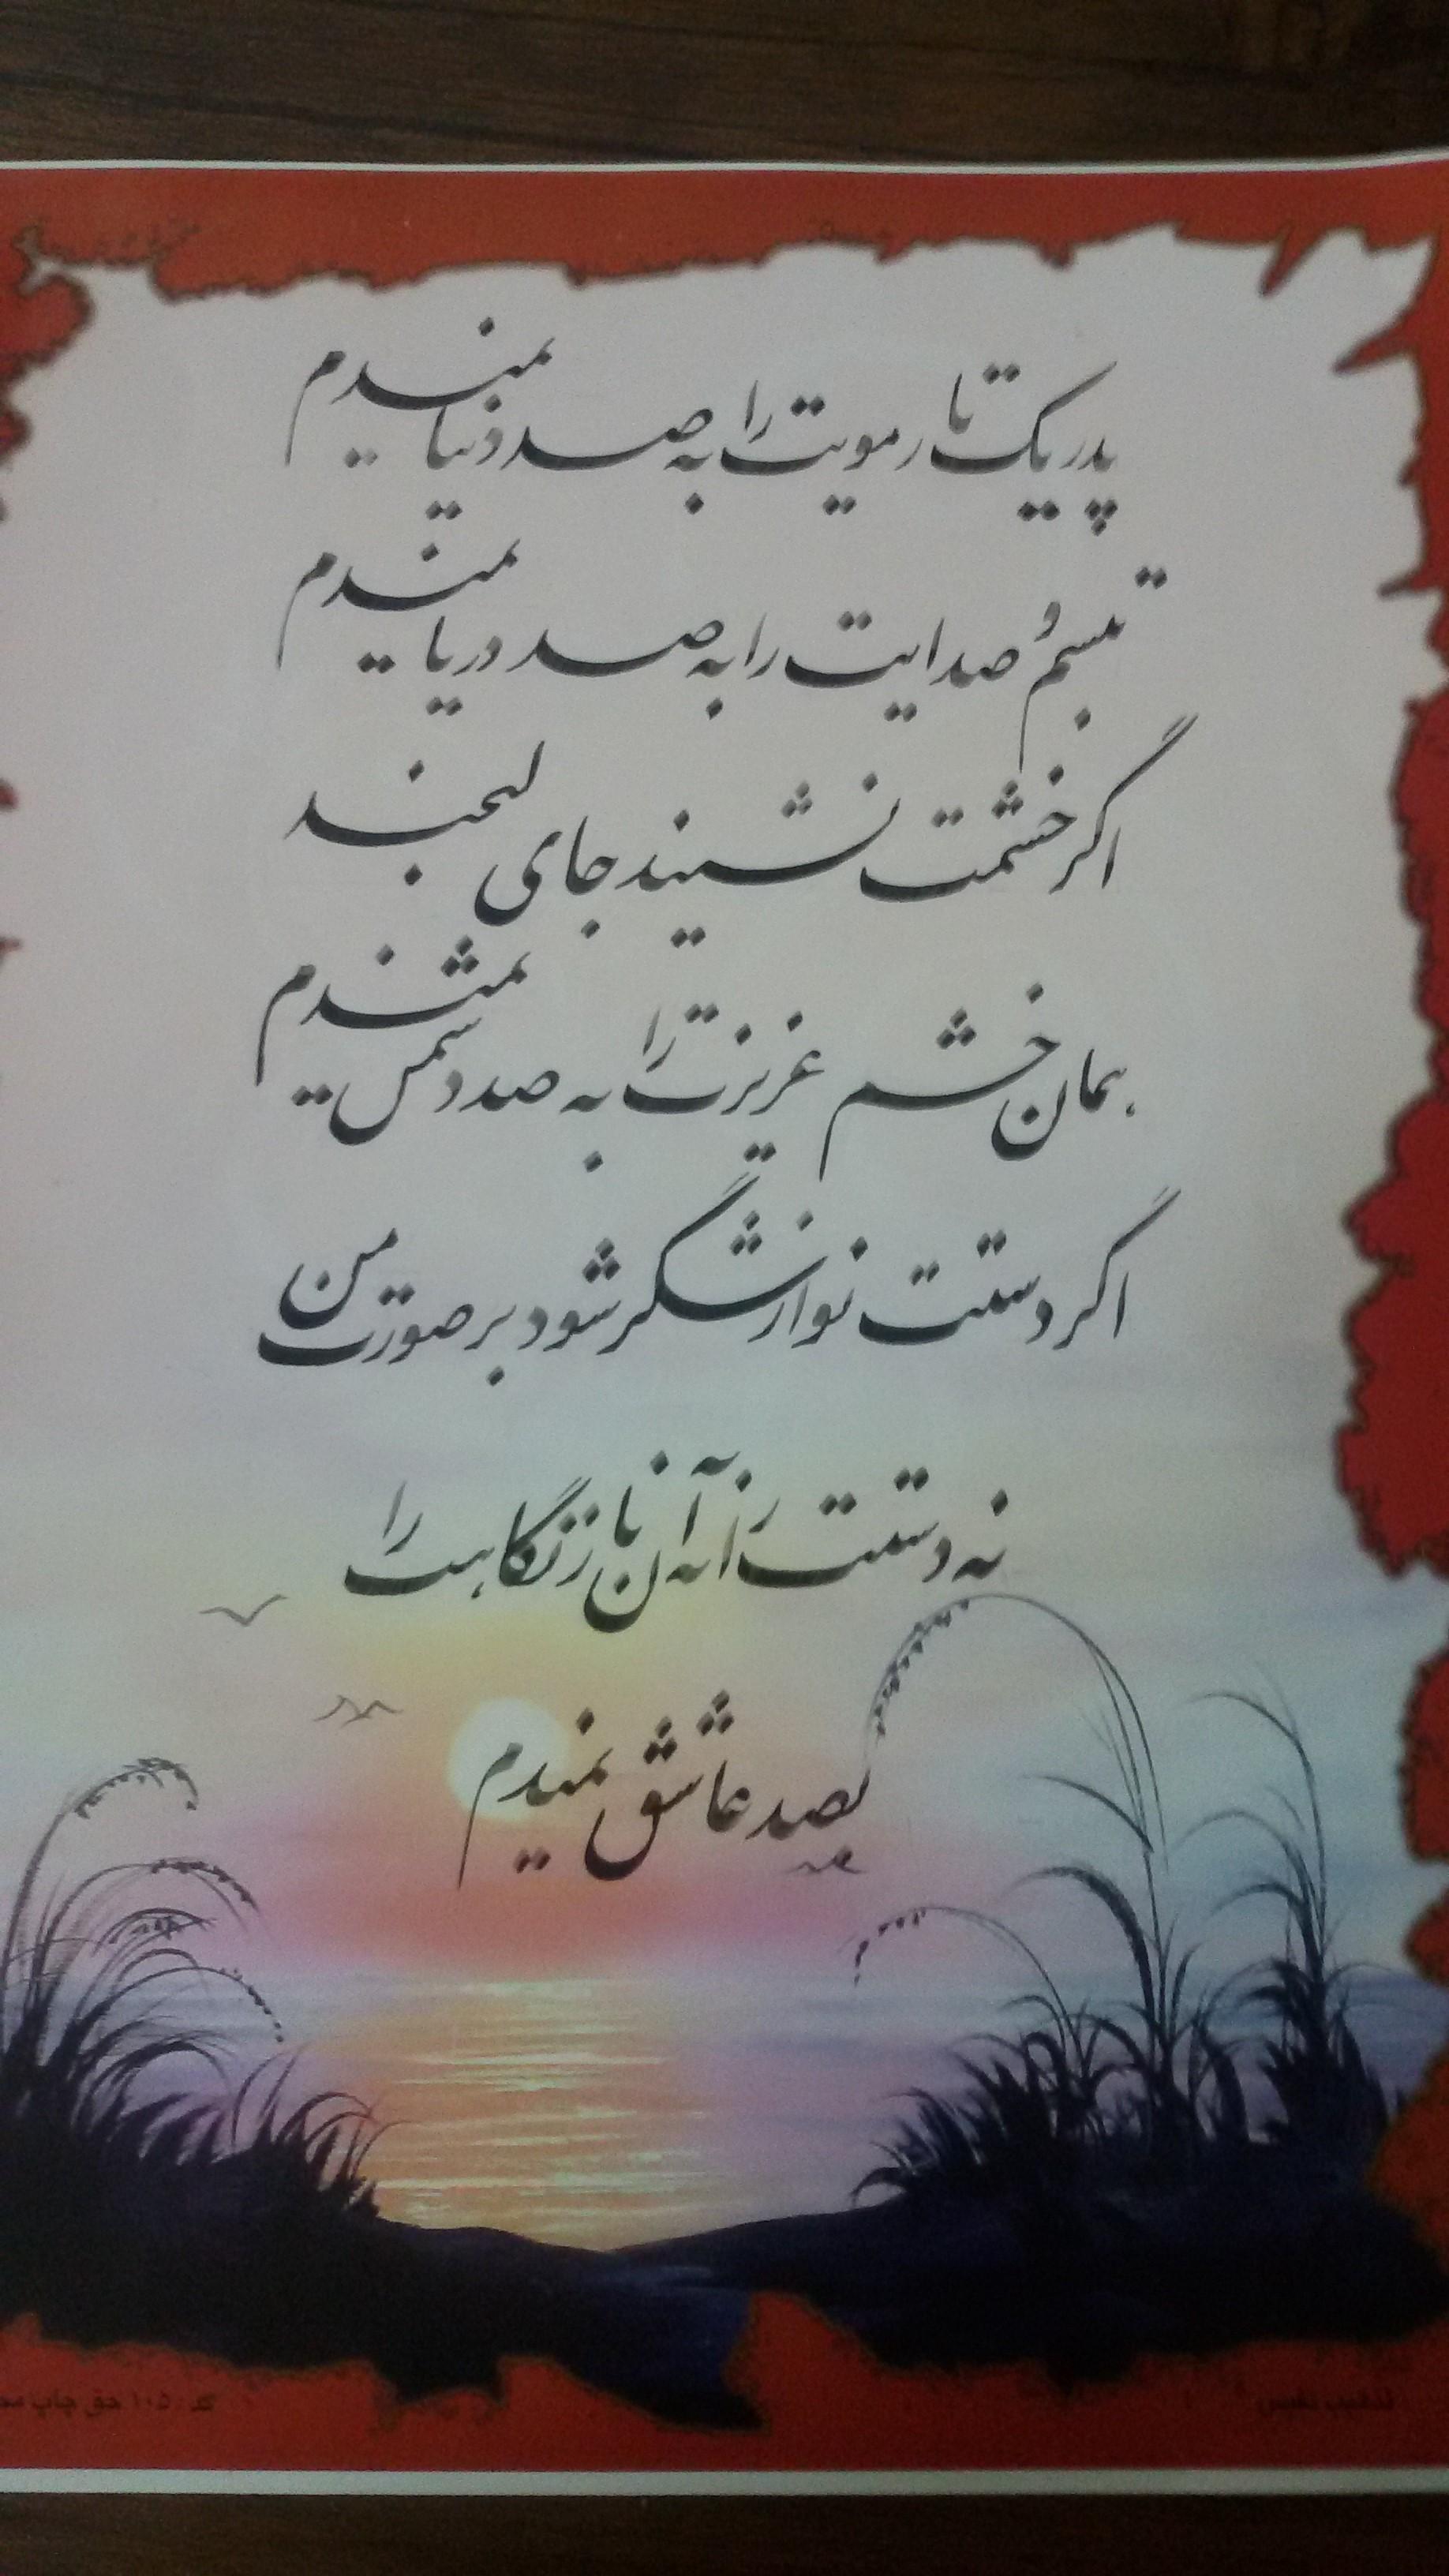 پدر یک تار مویت را به صد دنیا نمیدم
تبسم و صدایت را به صد دریا نمیدم
اگر خشمت نشیند جای لبخند
همان خشم عزیزت را به صد شمس نمیدم
اگر دستت نوازشگر شود بر صورت من
نه دستت را نه آن ناز نگاهت را
بصد عاشق نمیدم